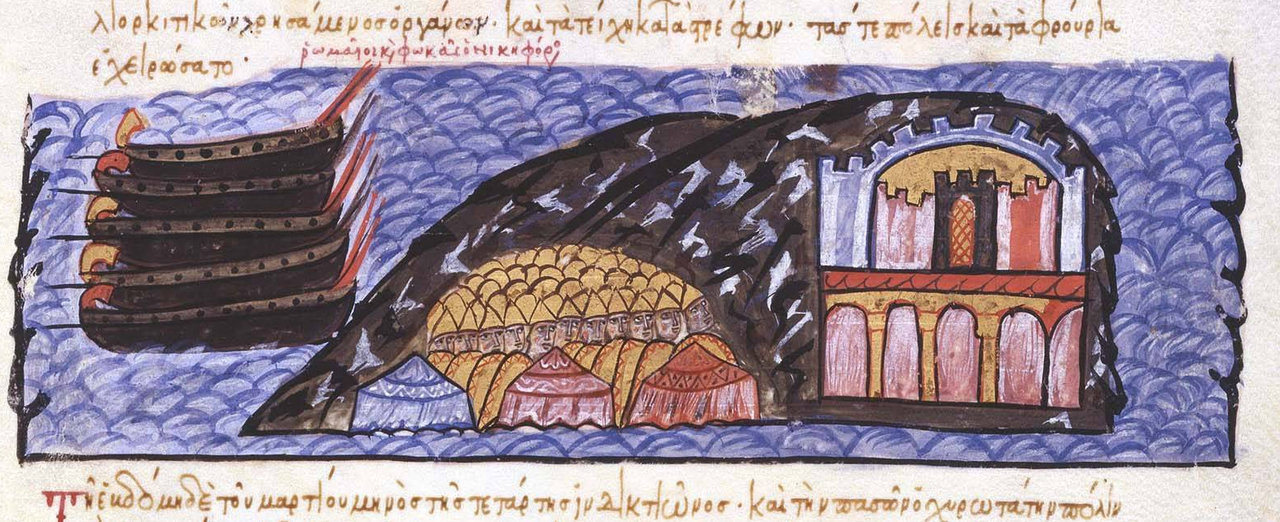 λιορκιτικοῖς χρησάμενος ὀργάνων· καὶ τὰ τείχη καταστρέφων· τάς τε πόλεις καὶ τὰ φρούρια
ἐχειρώσατο·
ῥωμαῖοι κ φωκᾶ ὁ νικηφόρ
τῆ ἑβδόμη δὲ τοῦ μαρτίου μηνὸς τῆς τετάρτης ἰνδικτιῶνος· καὶ τὴν πασῶν ὀχυρωτάτην πόλιν